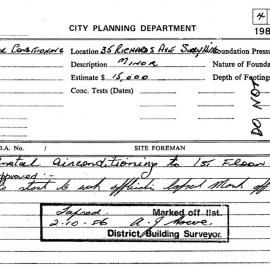 CITY PLANNING DEPARTMENT
198
CONDITIONING Location 35 RICHARDS AVE Surry Hills Foundation Press
Description MINOR Nature of Found
Estimate $ 15,000 Depth of Footings
Conc. Tests (Dates)
DO NOT
D.A. No. / SITE FOREMAN
airconditioning to 1st Floor
approved :-
start to work
Lapsed Marked off list.
2-10-86
District Building Surveyor.